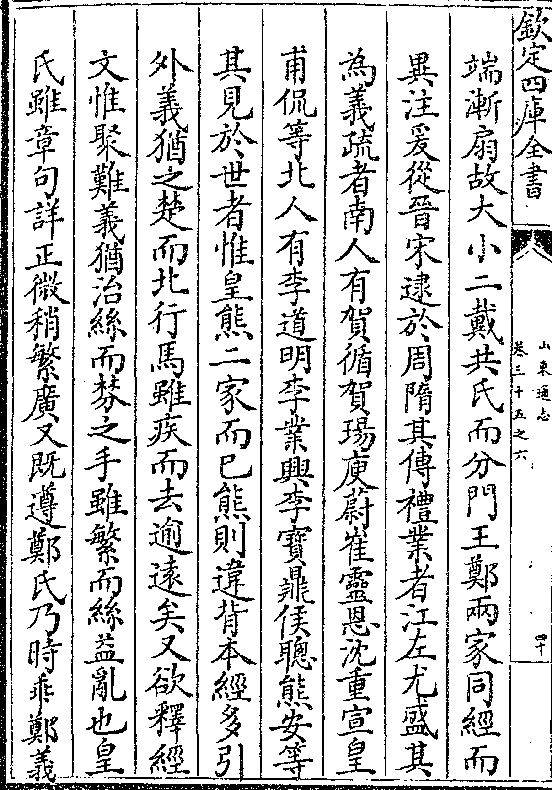 欽定四庫全書
山東通志
卷三十五之六
四十
端漸扇故大小二戴共氏而分門王鄭兩家同經而
異注爰從晉宋逮於周隋其傳禮業者江左尤盛其
為義疏者南人有賀循賀瑒庾蔚崔靈恩沈重宣皇
甫侃等北人有李道明李業興李寶鼎侯聰熊安等
其見於世者惟皇熊二家而已熊則違背本經多引
外義猶之楚而北行馬雖疾而去逾遠矣又欲釋經
文惟聚難義猶治絲而棼之手雖繁而絲益亂也皇
氏雖章句詳正微稍繁廣又既遵鄭氏乃時乖鄭義